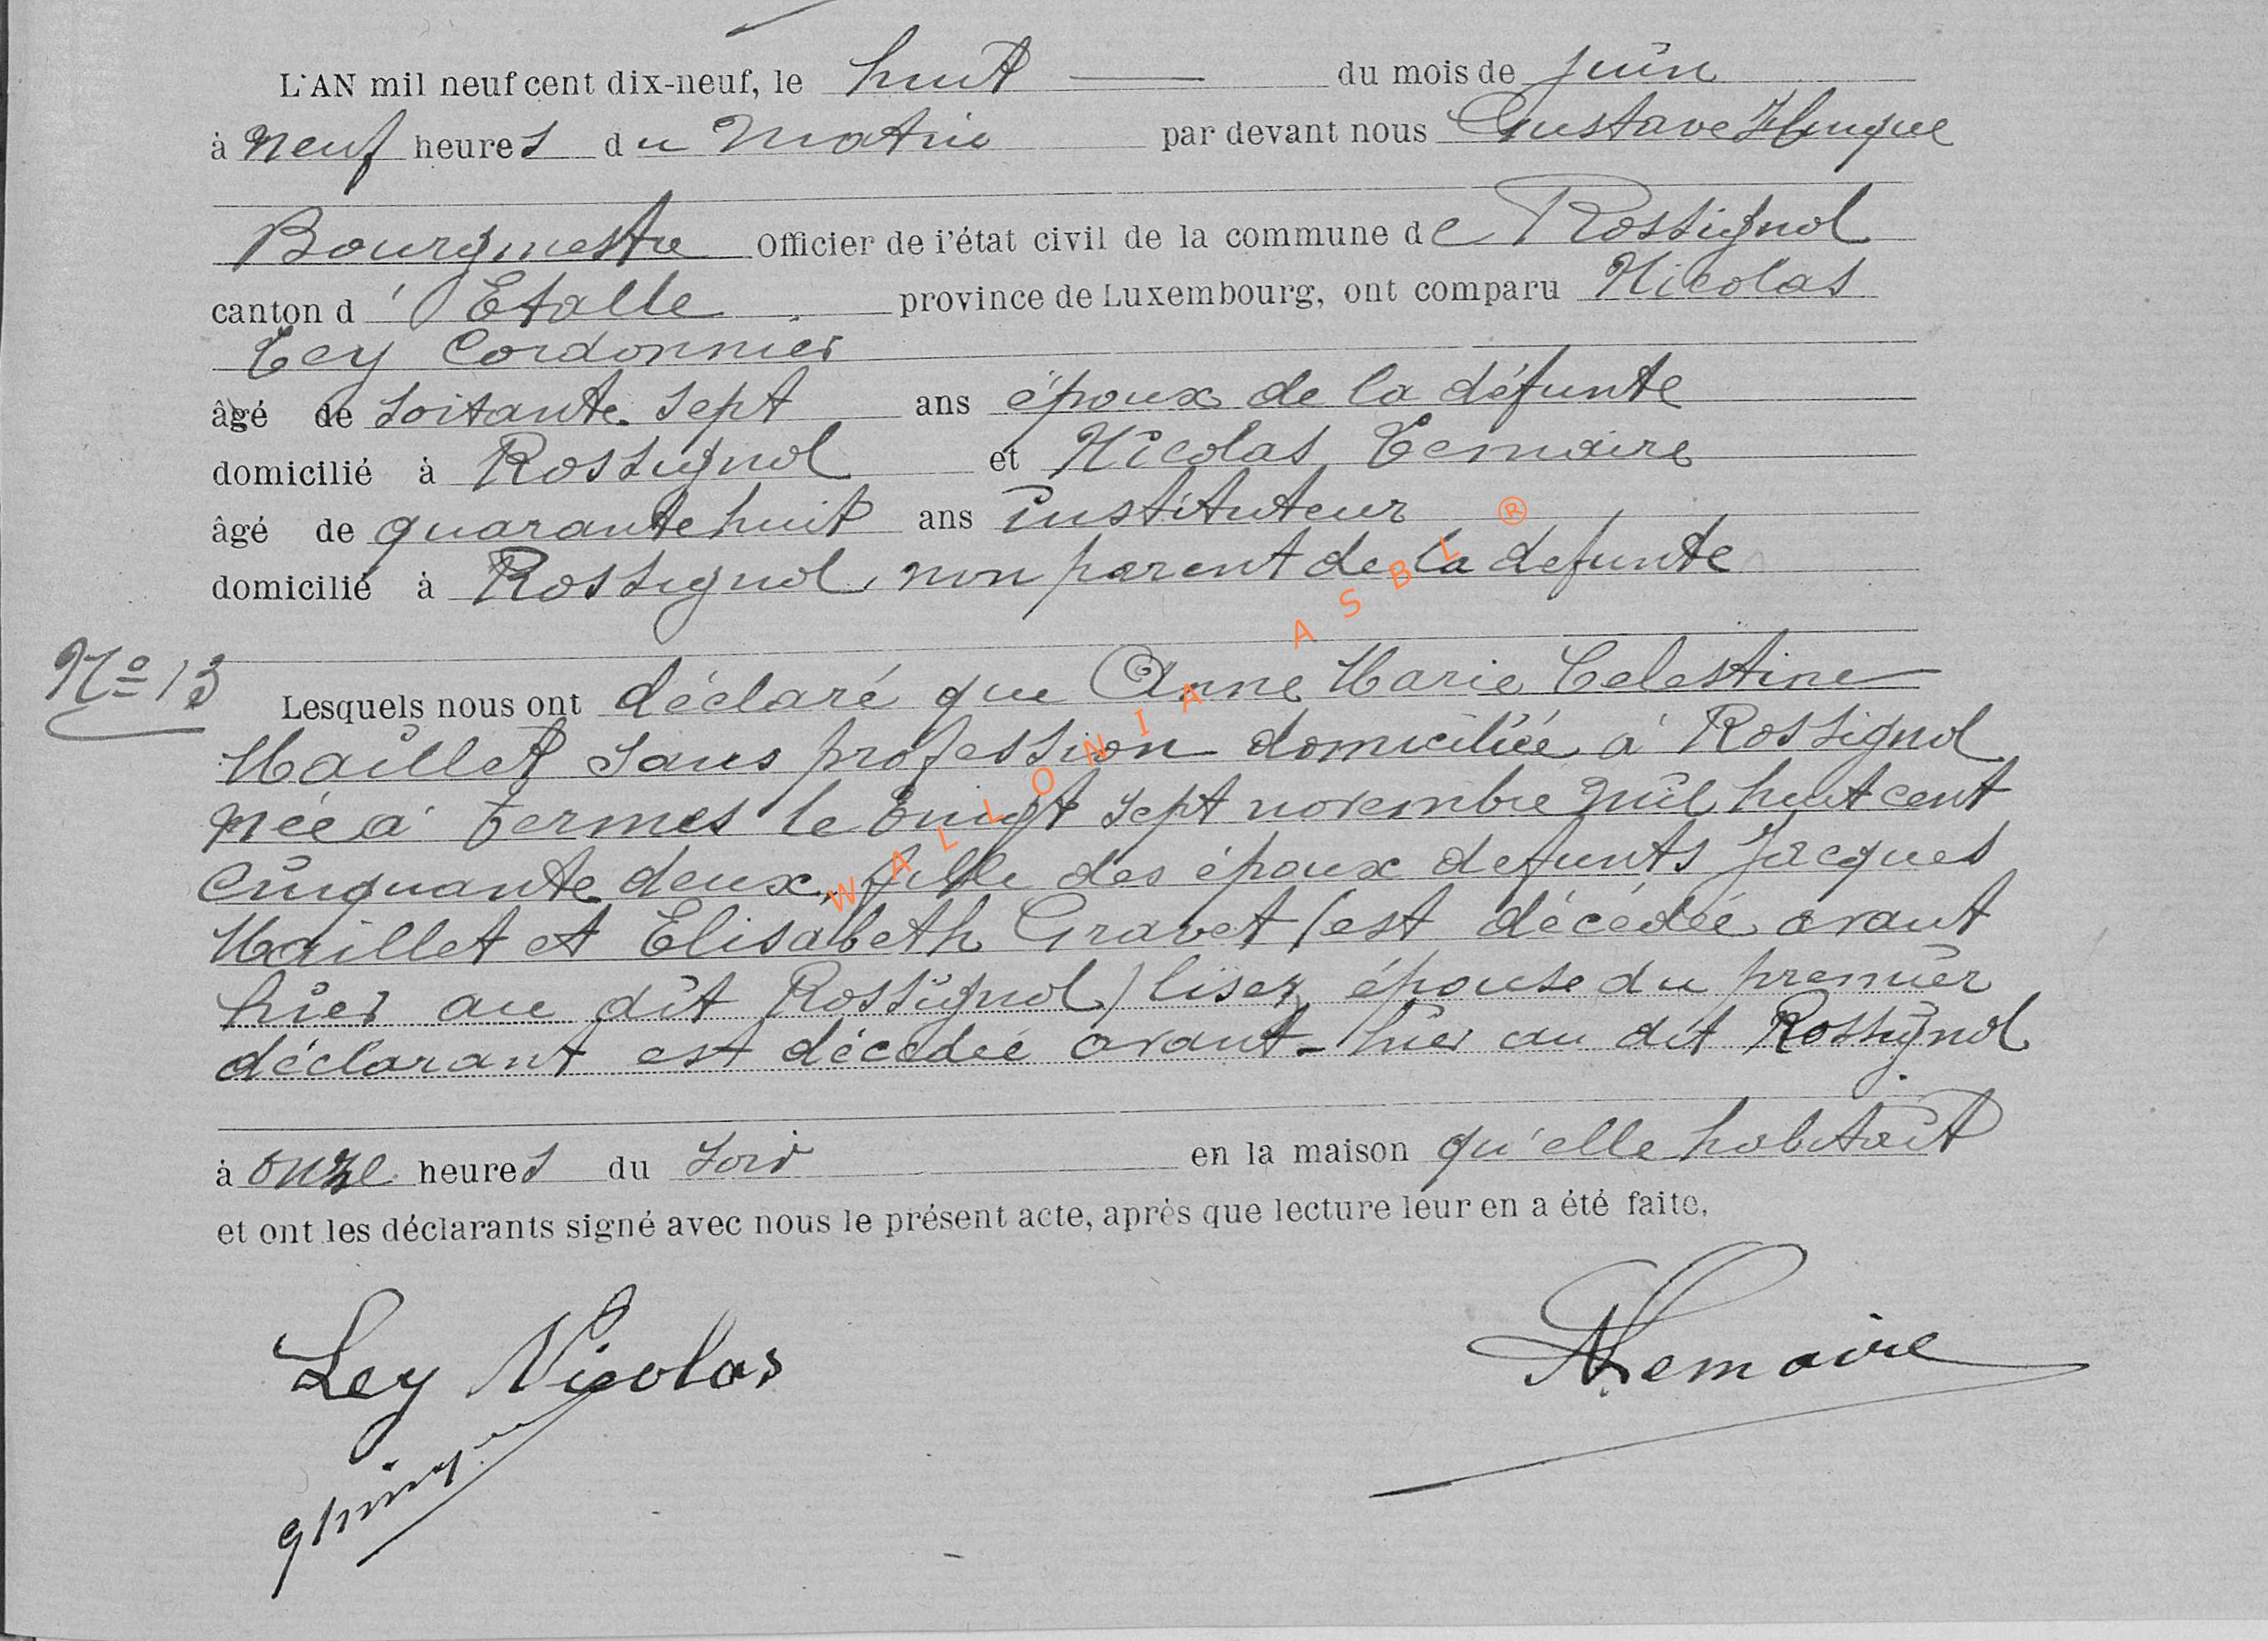 L'AN mil neuf cent dix-neuf, le huit du mois de juin
à neuf heures du matin par devant nous Gustave Hurique
Bourgmestre Officier de l'état civil de la commune de Rossignol
canton d'Etalle province de Luxembourg, ont comparu Nicolas
Ley Cordonnier
âgé de soixante sept ans époux de la défunte
domicilié à Rossignol et Nicolas Lemaire
âgé de quarante huit ans instituteur
domicilié à Rossignol, non parent de la defunte
No 13
Lesquels nous ont déclaré que Anne Marie Celestine
Maillet sans profession domiciliée à Rossignol
née à Termes le vingt sept novembre mil huit cent
cinquante deux, fille des époux defunts Jacques
Maillet et Elisabeth Gravet (est décédée avant
hier au dit Rossignol) lisez épouse du premier
déclarant est décédée avant-hier au dit Rossignol
à onze heures du soir en la maison qu'elle habitait
et ont les déclarants signé avec nous le présent acte, après que lecture leur en a été faite.
Ley Nicolas
NLemaire
WALLONIA ASBL ®